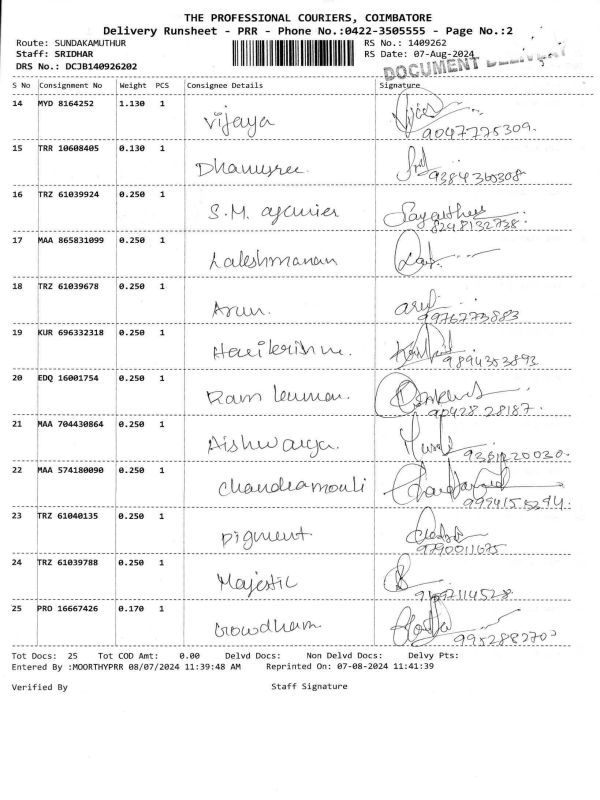 THE PROFESSIONAL COURIERS, COIMBATORE
Delivery Runsheet - PRR - Phone No.:0422-3505555 - Page No.:2
Route: SUNDAKAMUTHUR RS No.: 1409262
Staff: SRIDHAR RS Date: 07-Aug-2024
DRS No.: DCJB140926202 DOCUMENT DELIVERY
S No Consignment No Weight PCS Consignee Details Signature
14 MYD 8164252 1.130 1 Vijaya
9047775309.
15 TRR 10608405 0.130 1 Dhanusree
9384360308
16 TRZ 61039924 0.250 1 S.M.
8248132738
17 MAA 865831099 0.250 1 Lakshmanan
18 TRZ 61039678 0.250 1 Arun.
9976773883
19 KUR 696332318 0.250 1 Harikrishna.
9894353893
20 EDQ 16001754 0.250 1 Ram kumar.
90428 28187.
21 MAA 704430864 0.250 1 Aishwarya.
22 MAA 574180090 0.250 1 Chandramouli
9994155294.
23 TRZ 61040135 0.250 1 Pigment
9790011675
24 TRZ 61039788 0.250 1 Majestic
25 PRO 16667426 0.170 1 Gowdham
Tot Docs: 25 Tot COD Amt: 0.00 Delvd Docs: Non Delvd Docs: Delvy Pts:
Entered By :MOORTHYPRR 08/07/2024 11:39:48 AM Reprinted On: 07-08-2024 11:41:39
Verified By Staff Signature